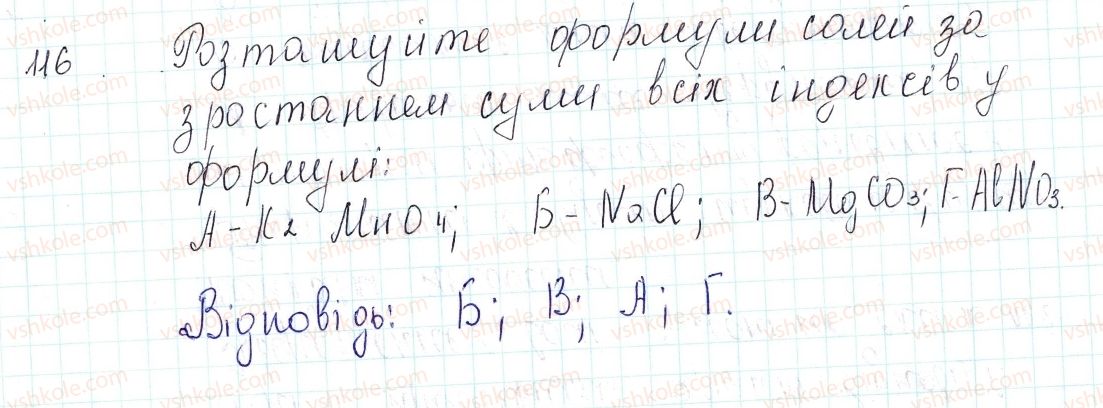 116 Розташуйте формули солей за
зростанням суми всіх індексів у
формулі:
А - K2 MnO4; Б - NaCl; В - MgCO3; Г - AlNO3.
Відповідь: Б; В; А; Г.